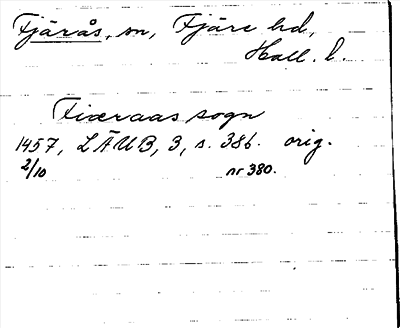 Fjärås, sn, Fjäre hd,
Hall. l.
Fiæraas sogn
1457, LÄUB, 3, s. 386. orig.
2/10 nr 380.